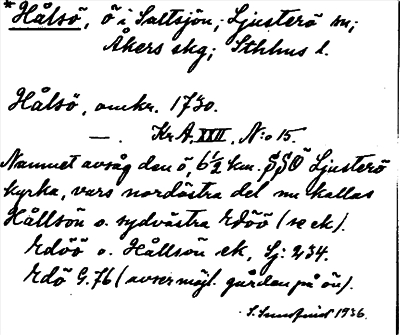 *Hålsö, ö i Saltsjön, Ljusterö sn;
Åkers skg; Sthlms l.
Hålsö, omkr. 1730.
— . Kr A, XXII, N:o 15.
Namnet avsåg den ö, 6½ km. SSO Ljusterö
kyrka, vars nordöstra del nu kallas
Hållsön o. sydvästra Edöö (se ek).
Edöö o. Hållsön ek, Sj: 234.
Edö G.76 (avser möjl. gården på ön).
S. 1936.